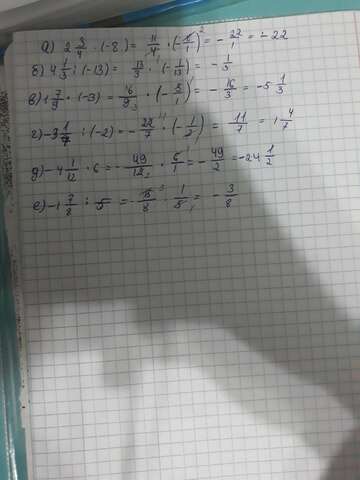 а) 2 3/4 · (-8) = 11/4 · (-8/1) = -22/1 = -22
б) 4 1/3 : (-13) = 13/3 · (-1/13) = -1/3
в) 1 7/9 · (-3) = 16/9 · (-3/1) = -16/3 = -5 1/3
г) -3 1/7 : (-2) = -22/7 · (-1/2) = 11/7 = 1 4/7
д) -4 1/12 · 6 = -49/12 · 6/1 = -49/2 = -24 1/2
е) -1 7/8 : 5 = -15/8 · 1/5 = -3/8